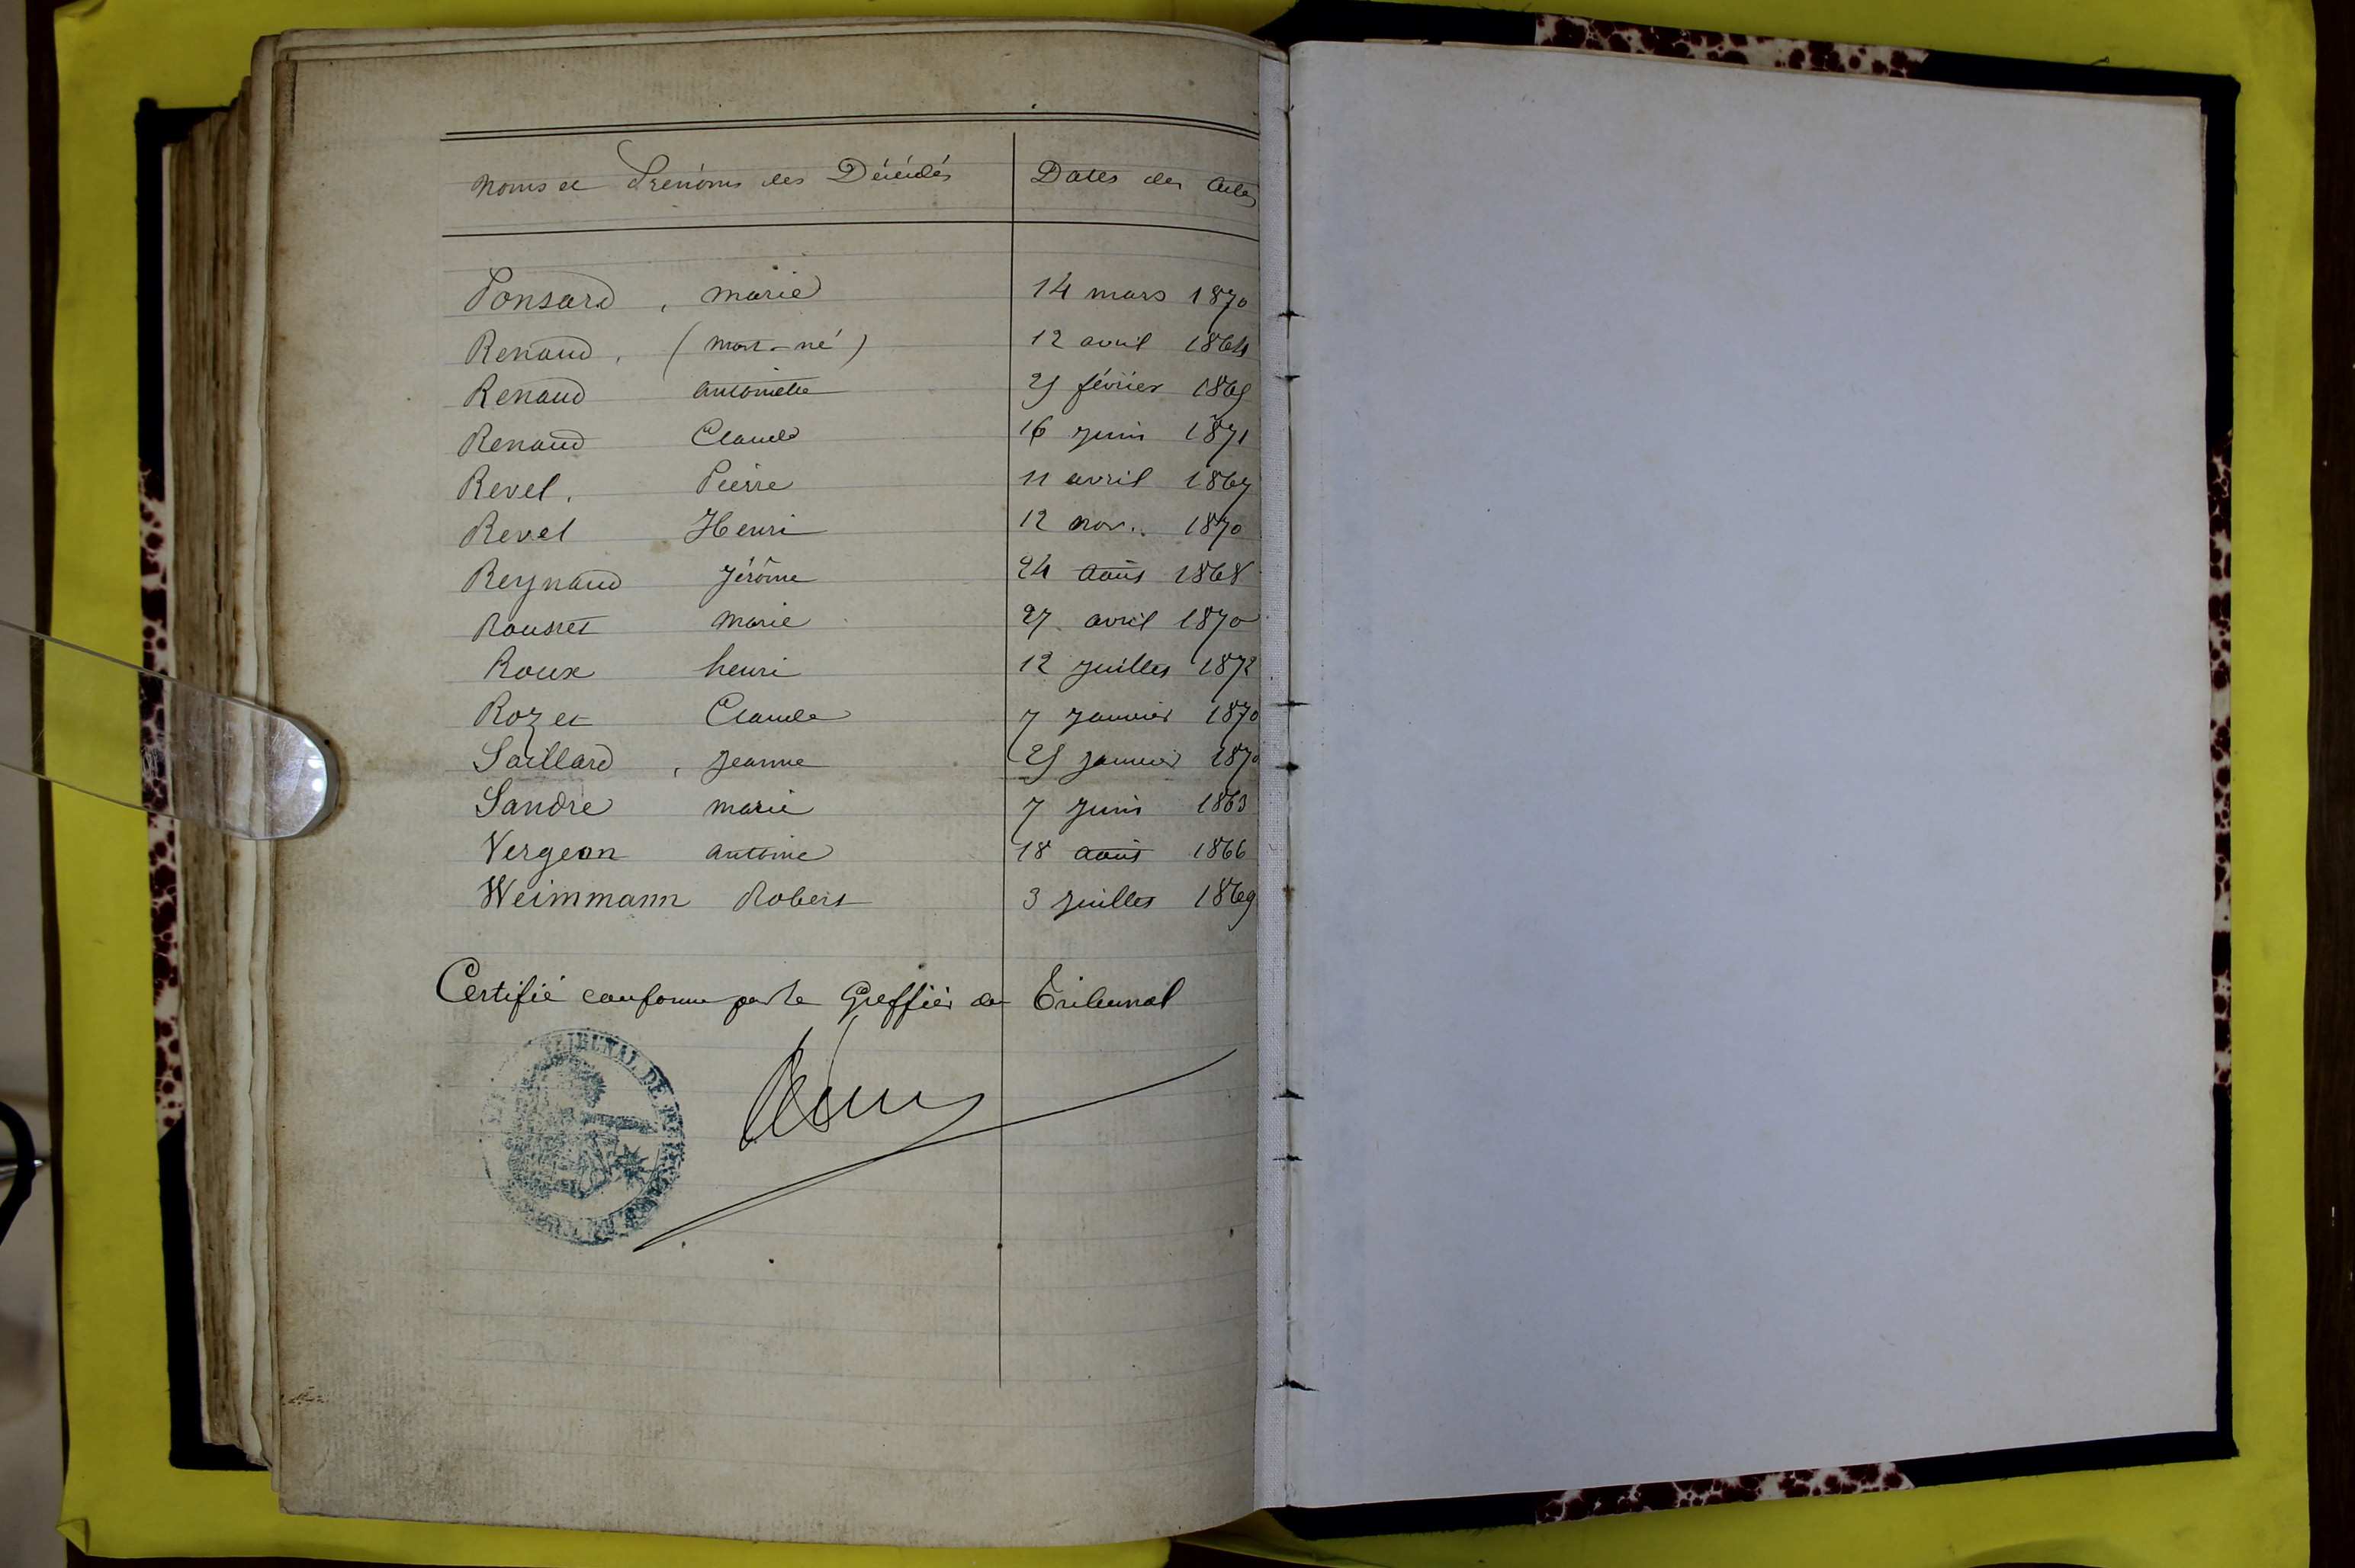 Noms et Prénoms des Décédés Dates des Actes
Ponsard, marie 14 mars 1870
Renaud, (mort-né) 12 avril 1864
Renaud antoinette février
Renaud Claude 16 juin 1871
Revel, Pierre 11 avril 1867
Revel Henri 12 nov. 1870
Reynaud Jérôme 24 août 1868
Rousset marie 27 avril 1870
Roux henri 12 juillet 1872
Rozet Claude 7 janvier 1870
Saillard, jeanne janvier 1870
Sandre marie 7 juin 1863
Vergeon antoine 18 août 1866
Weimmann Robert 3 juillet 1869
Certifié conforme par le Greffier du Tribunal
TRIBUNAL DE